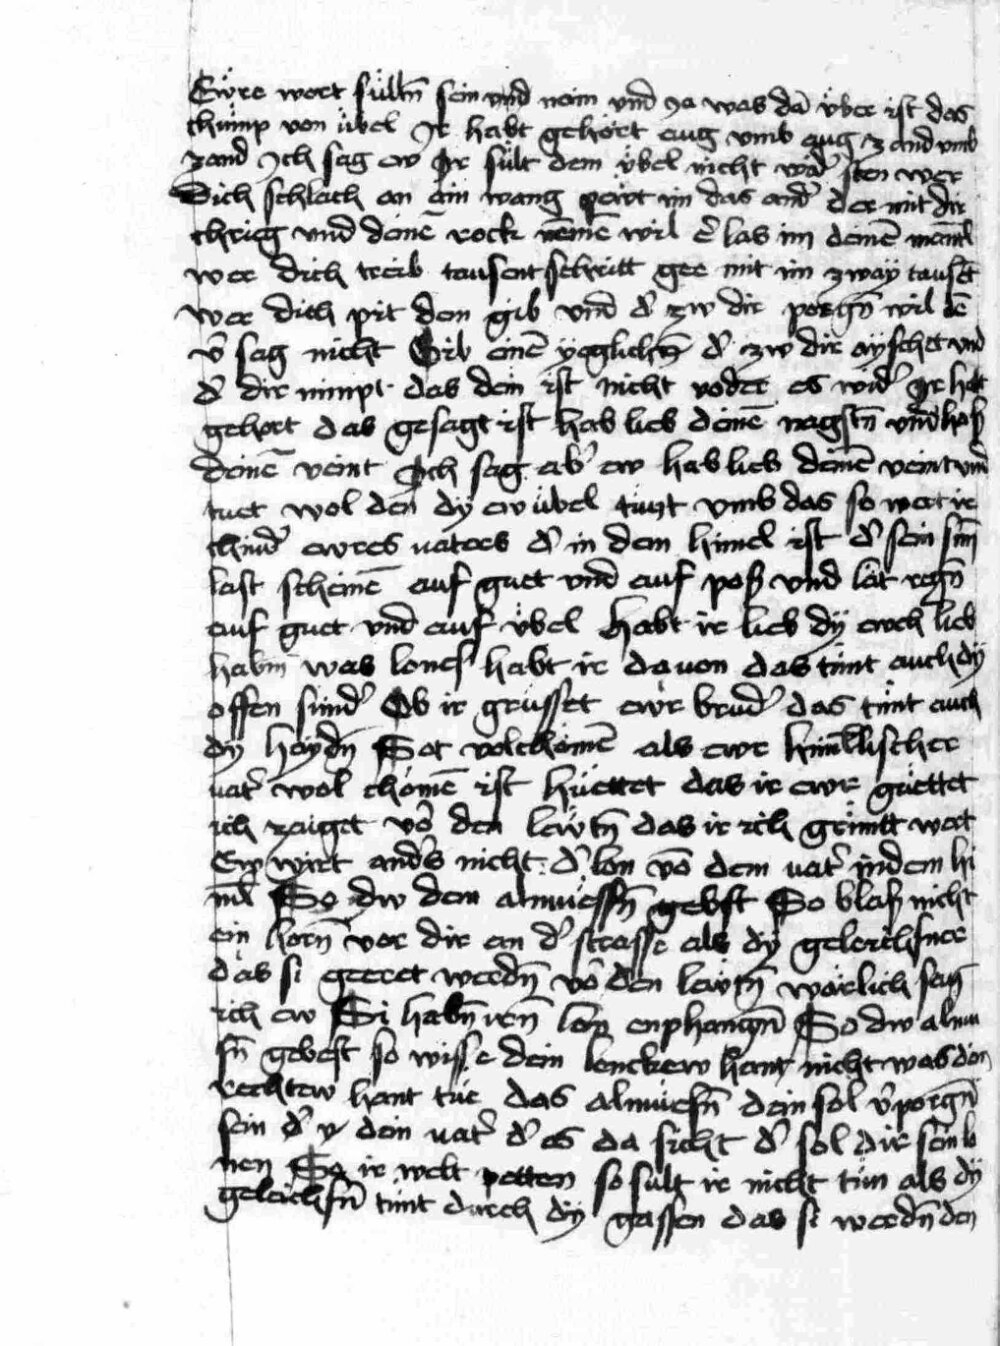 Ewre wort süllñ sein vnd nain vnd ya was da vber ist das
chümp von übel Ir habt gehört aug vmb aug zand vmb
zand Ich sag ew Ir sült dem übel nicht wid' sten wer
Dich schlach an ain wang pewt im das and' der mit dir
chrieg vnd deinē rock nemē wil d' las im deinē mantl
wer dich treib tausent schritt gee mit im zway tausēt
wer dich pit dem gib vnd d' zw dir porgñ wil dē
v' sag nicht Gib einē ygleichñ d' zw dir ayschet vnd
d' dir nimpt das dein ist nicht voder es wid' Ir habt
gehort das gesagt ist hab lieb deinē nagstñ vnd has
deinē veint Ich sag ab' ew hab lieb deinē veint vnd
tuet wol den dy ew übel tünt vmb das so wert ir
chind' ewres vaters d' in dem himel ist d' sein sun
last scheinē auf guet vnd auf pos vnd lat regñ
auf guet vnd auf vbel Habt ir lieb dy ewch lieb
habm was lones habt ir dauon das tünt auch dy
offen sünd' Ob ir grüsset ewr brud' das tünt auch
dy haydñ Set volchömē als ewr himlischer
uat' wol chömē ist hüettet das ir ewr güettet
ich zaiget vō den lewtñ das ir ich wert
Ew wirt anders nicht d' lon vō dem uat' in dem hi
ml So dw dem almuessñ gebst So blas nicht
ein horñ vor dir an d' strasse als dy geleichsner
das si geeret werdñ vō den lewtñ wärlich sag
ich ew Si habñ irñ lon enphangñ So dw almu
sñ gebest so wisse dein lenckew hant nicht was dein
rechtew hant tue das almuesñ dein sol v'porgñ
sein d' dein uat' d' es da sicht d' sol dir sein lo
nen So ir welt petten so sült ir nicht tün als dy
geleichsñ tünt durch dy gassen das si werdñ den